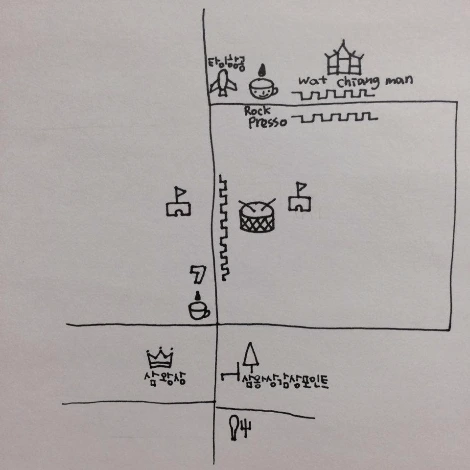 타이항공
wat chiang man
Rock
Presso
7
삼왕상
삼왕상감상포인트